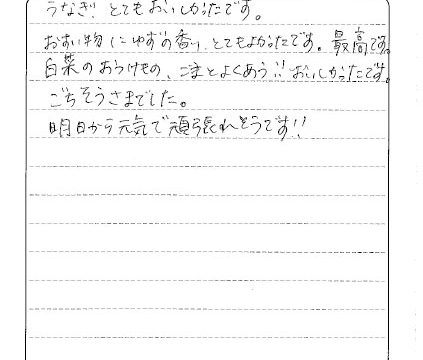 うなぎ とてもおいしかったです。
おすい物にゆずの香り、とてもよかったです。最高です。
白菜のおつけもの、ごまとよくあう!! おいしかったです。
ごちそうさまでした。
明日から元気で頑張れそうです!!